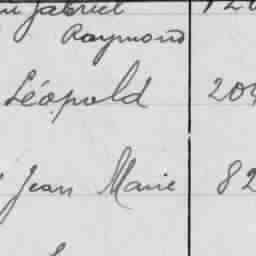 Gabriel
Raymond
Léopold 204
Jean Marie 82